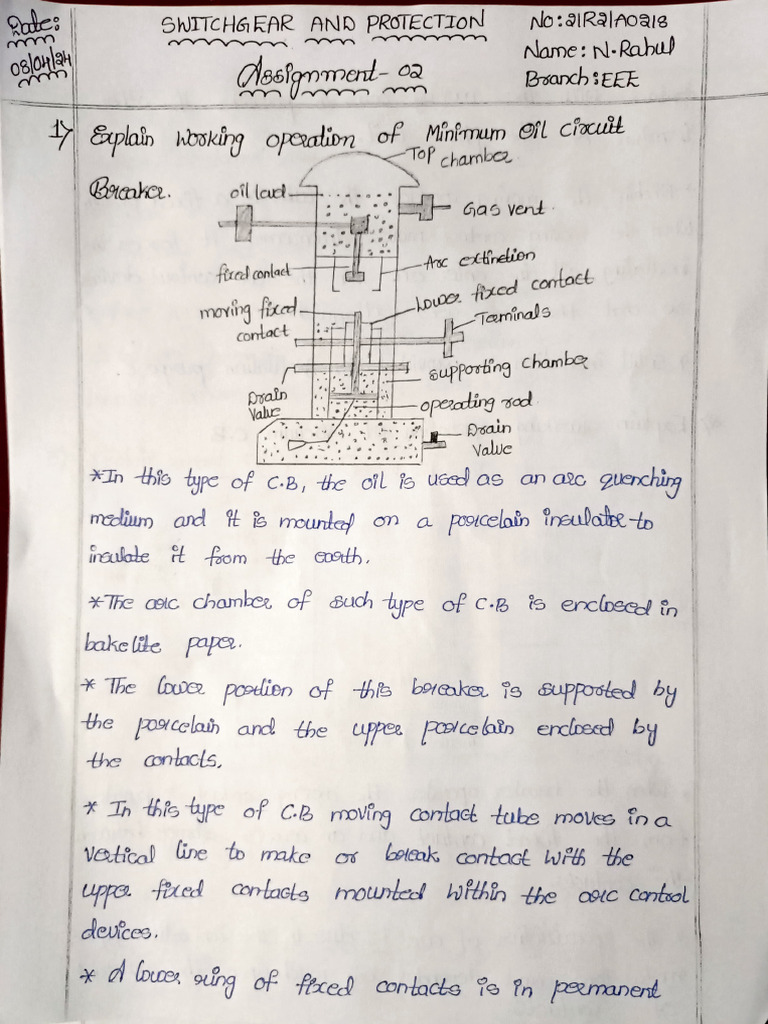 Date:
08/04/24
SWITCHGEAR AND PROTECTION
Assignment-02
No:21R21A0218
Name: N.Rahul
Branch:EEE
1) Explain working operation of Minimum Oil circuit
Breaker.
Top chamber
oil level
Gas vent.
fixed contact
Arc extinction
moving fixed contact
Lower fixed contact
Terminals
supporting chamber
Drain valve
operating rod
Drain valve
*In this type of C.B, the oil is used as an arc quenching
medium and it is mounted on a porcelain insulator to
insulate it from the earth.
*The arc chamber of such type of C.B is enclosed in
bakelite paper.
* The lower portion of this breaker is supported by
the porcelain and the upper porcelain enclosed by
the contacts.
* In this type of C.B moving contact tube moves in a
vertical line to make or break contact with the
upper fixed contacts mounted within the arc control
devices.
* A lower ring of fixed contacts is in permanent